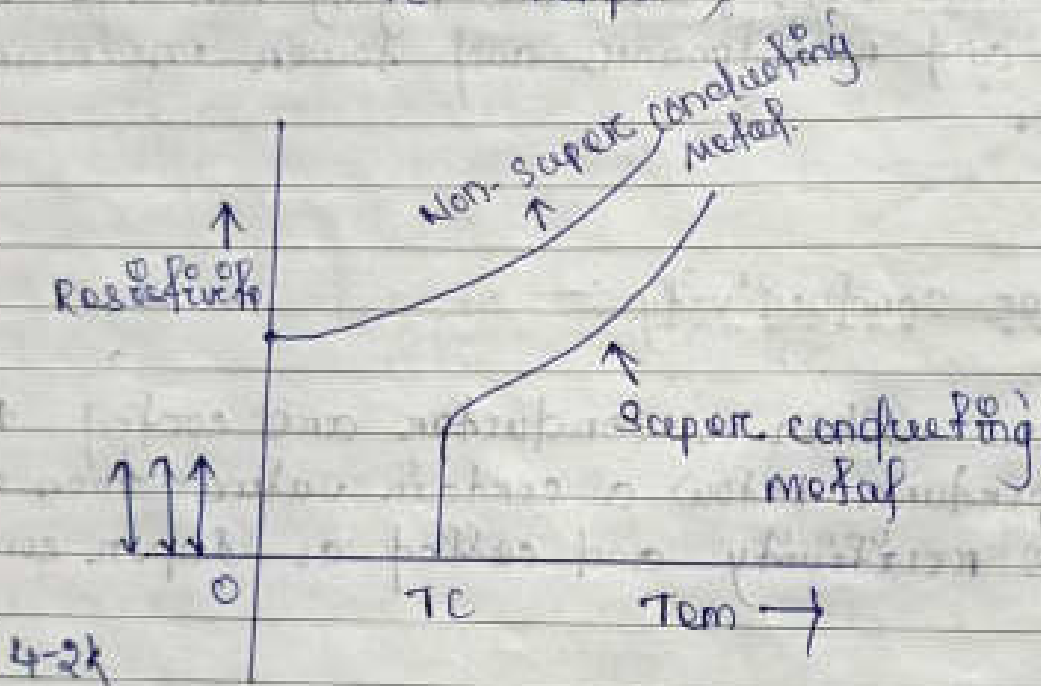 Non-super conducting
metal.
Resistivity
Super conducting
metal
0
TC
Tem
4-2k